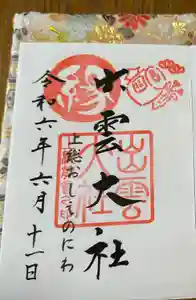 出雲大社
上総おしどりのにわ
令和六年六月十一日
出雲
大社